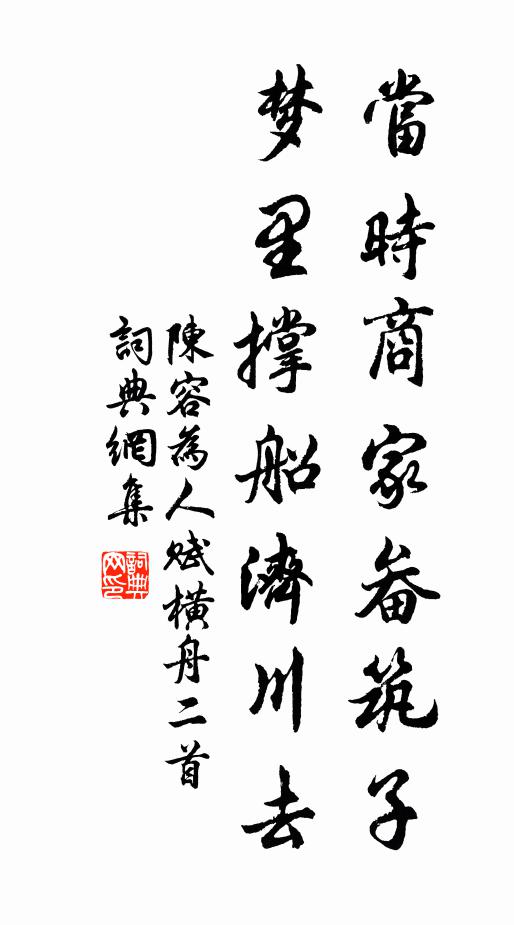 當時商家畚筑子
梦里撑船濟川去
陳容為人賦橫舟二首
詞典網集
詞典網印